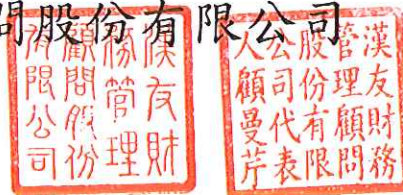 問股份有限公司
漢友財
務管理
顧問股份
有限公司
漢友財務
管理顧問
股份有限
公司代表
人顧曼芹